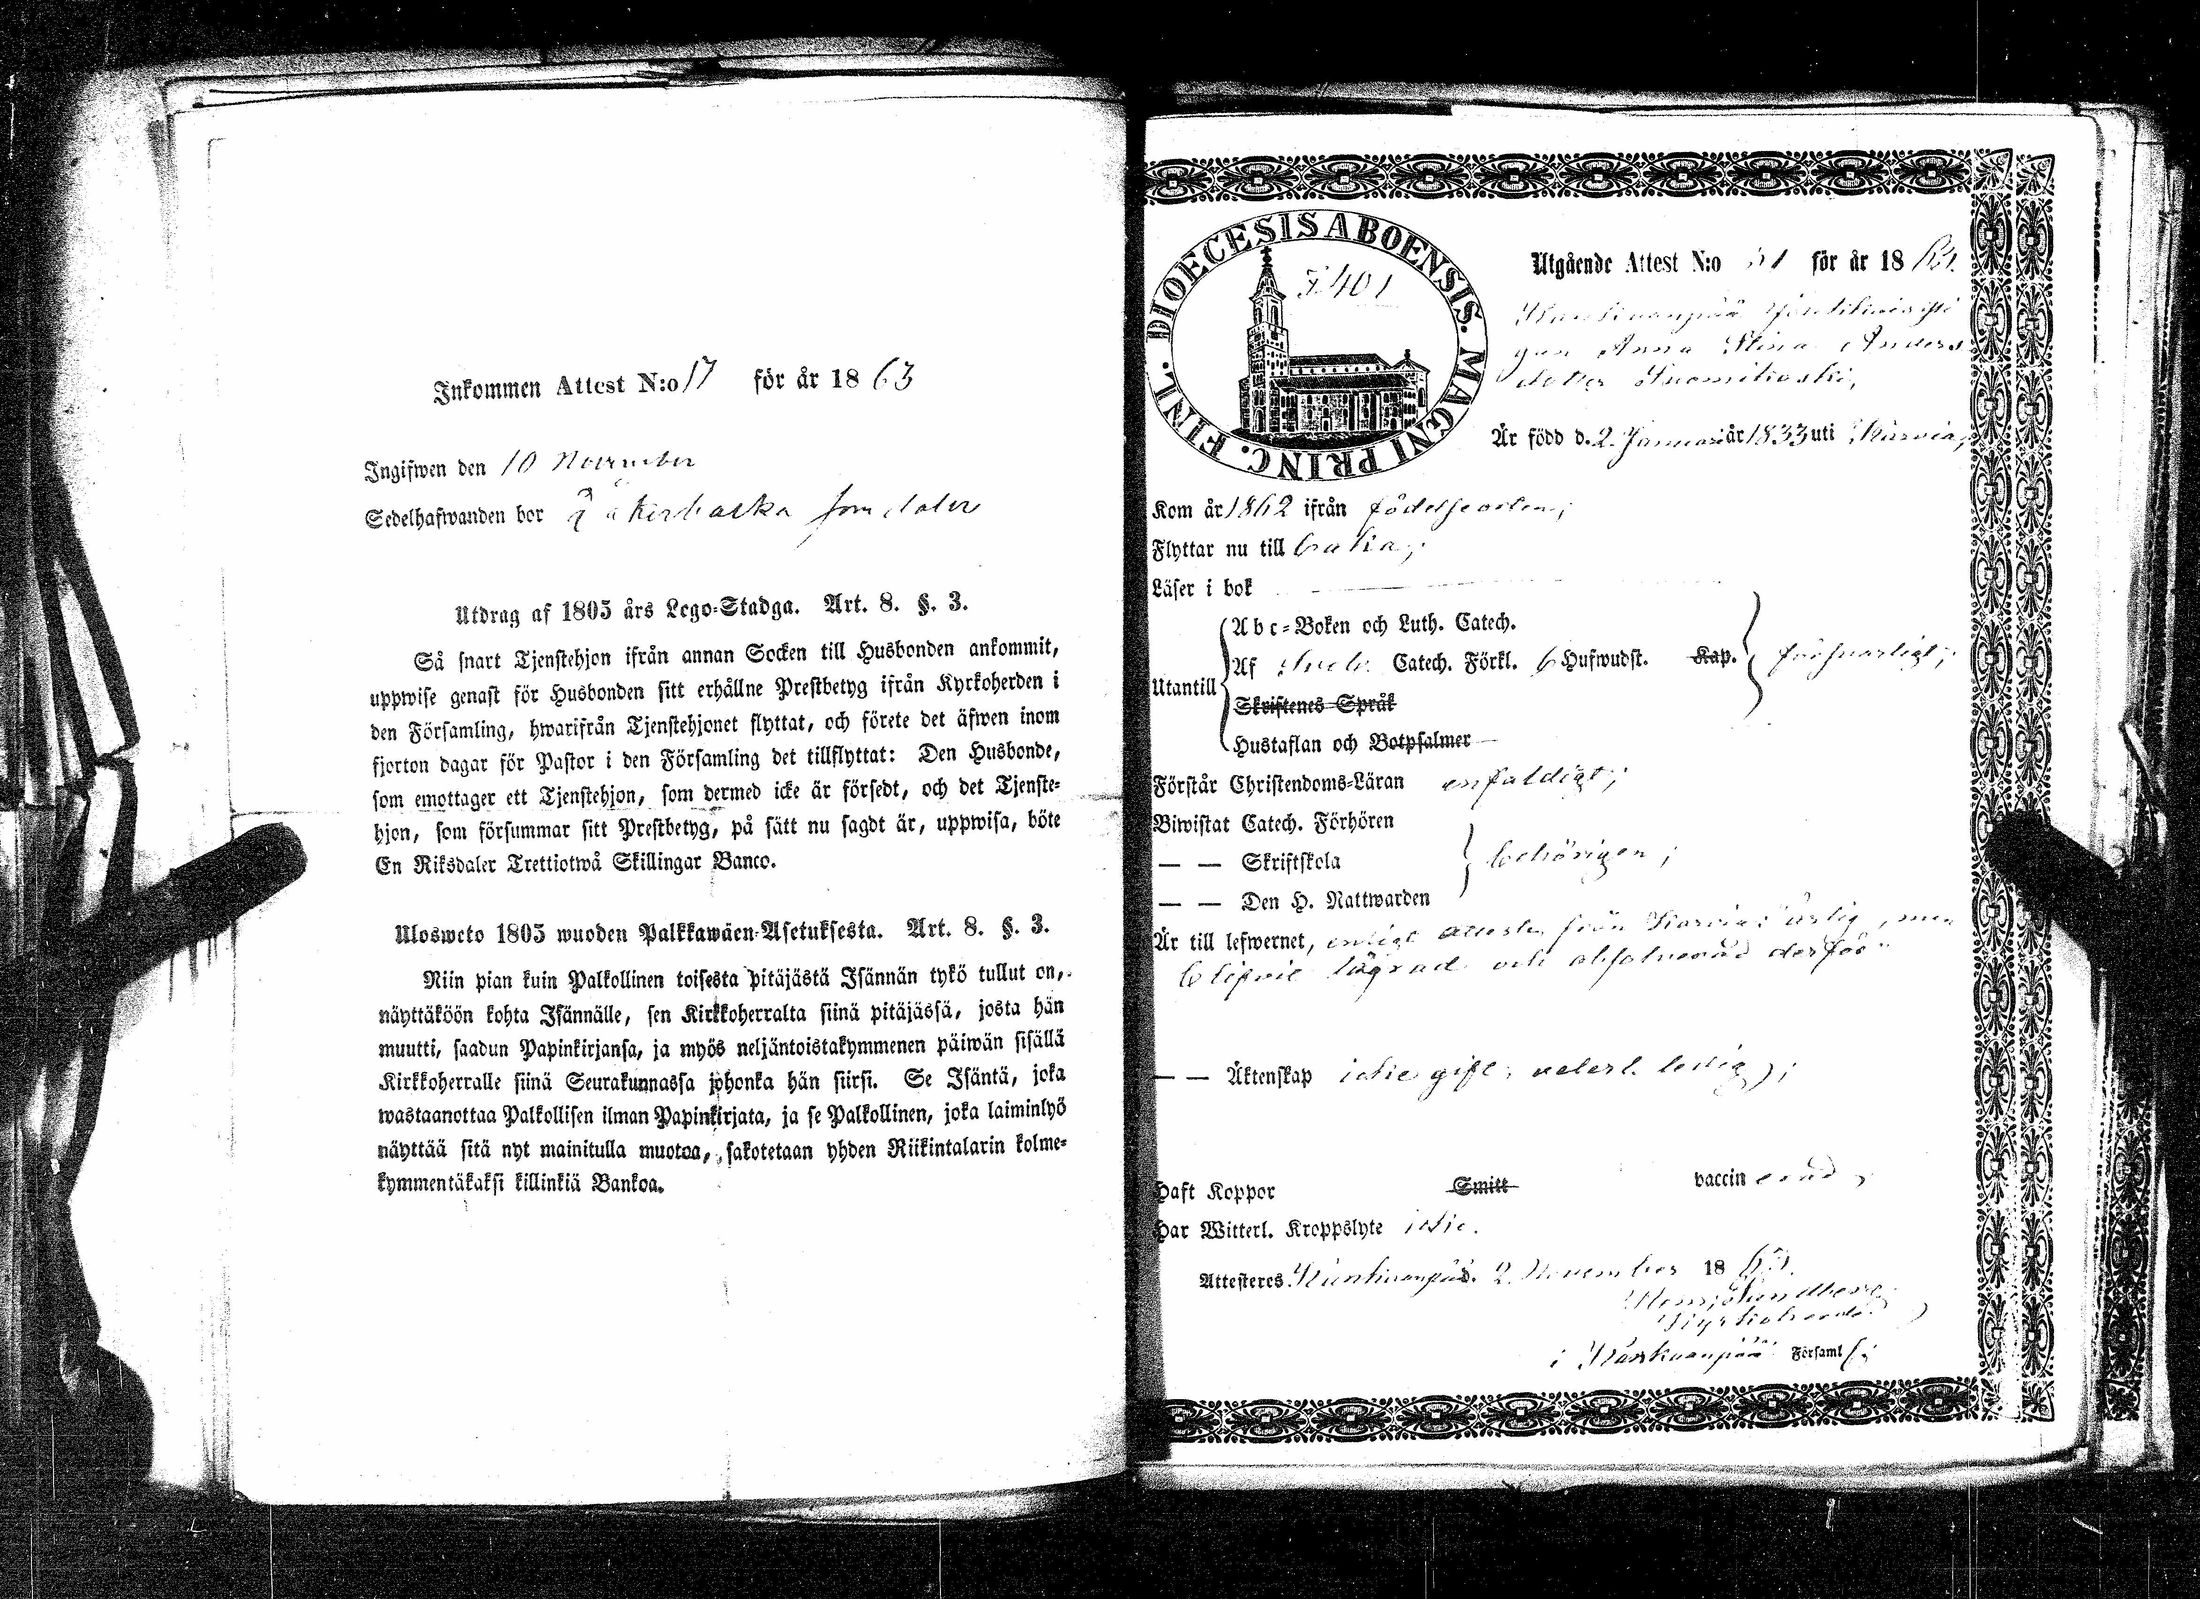 Inkommen Attest N:o 17 för år 1863
Ingifwen den 10 November
Sedelhafwanden bor
Utdrag af 1805 års Lego-Stadga. Art. 8. §. 3.
Så snart Tjenstehjon ifrån annan Socken till Husbonden ankommit,
uppwise genast för Husbonden sitt erhållne Prestbetyg ifrån Kyrkoherden i
den Församling, hwarifrån Tjenstehjonet flyttat, och förete det äfwen inom
fjorton dagar för Pastor i den Församling det tillflyttat: Den Husbonde,
som emottager ett Tjenstehjon, som dermed icke är försedt, och det Tjenste-
hjon, som försummar sitt Prestbetyg, på sätt nu sagdt är, uppwisa, böte
En Riksdaler Trettiotwå Skillingar Banco.
Ulosweto 1805 wuoden Palkkawäen-Asetuksesta. Art. 8. §. 3.
Niin pian kuin Palkollinen toisesta pitäjästä Isännän tykö tullut on,
näyttäköön kohta Isännälle, sen Kirkkoherralta siinä pitäjässä, josta hän
muutti, saadun Papinkirjansa, ja myös neljäntoistakymmenen päiwän sisällä
Kirkkoherralle siinä Seurakunnassa johonka hän siirsi. Se Isäntä, joka
wastaanottaa Palkollisen ilman Papinkirjata, ja se Palkollinen, joka laiminlyö
näyttää sitä nyt mainitulla muotoa, sakotetaan yhden Riikintalarin kolme-
kymmentäkaksi killinkiä Bankoa.
DIOECESIS ABOENSIS. MAGNI PRINC. FINL.
F. 401
Utgående Attest N:o för år 18
Anna Stina Anders
dotter Suomikoski,
Är född d. 2. Januari år 1833 uti Karvia,
Kom år 1862 ifrån födelseorten;
Flyttar nu till baka;
Läser i bok
Utantill
Abc-Boken och Luth. Catech.
Af Catech. Förkl. 6 Hufwudst. Kap. försvarligt;
Skriftenes Språk
Hustaflan och Botpsalmer
Förstår Christendoms-Läran enfaldigt;
Biwistat Catech. Förhören
— — Skriftskola behörigen;
— — Den H. Nattwarden
Är till lefwernet, enligt attest från Karvia: ärlig, men
blifvit lägrad och absolverad derför
— — Äktenskap icke gift, ledig);
Haft Koppor Smitt vaccinerad;
Har Witterl. Kroppslyte icke.
Attesteres Kankaanpää d. 2. November 1863.
Kyrkoherde
i Kankaanpää Församl